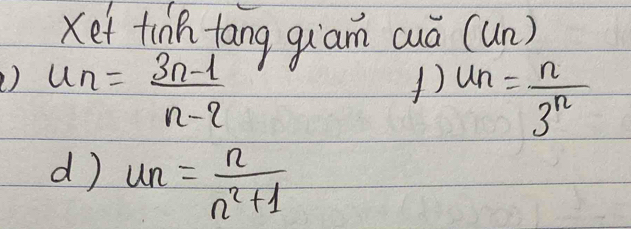 Xét tính tăng giảm của (Un)
) Un = (3n-1)/(n-2)    f) Un = n/3^n
d) Un = n/(n²+1)